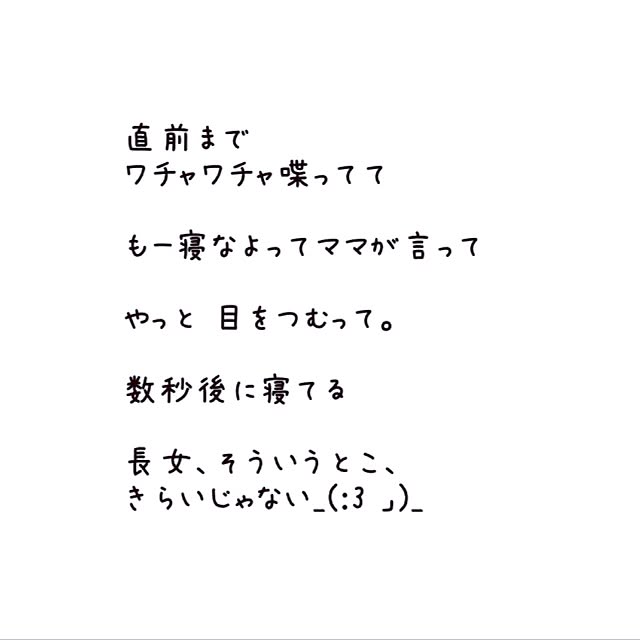 直前まで
ワチャワチャ喋ってて
もー寝なよってママが言って
やっと 目をつむって。
数秒後に寝てる
長女、そういうとこ、
きらいじゃない_(:3 」)_